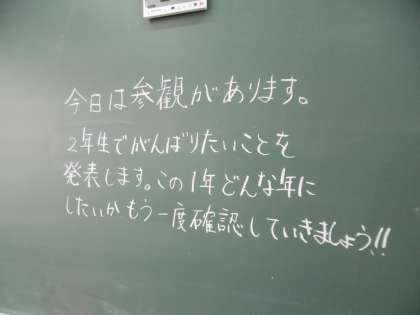 今日は参観があります。
2年生でがんばりたいことを
発表します。この1年どんな年に
したいかもう一度確認していきましょう!!